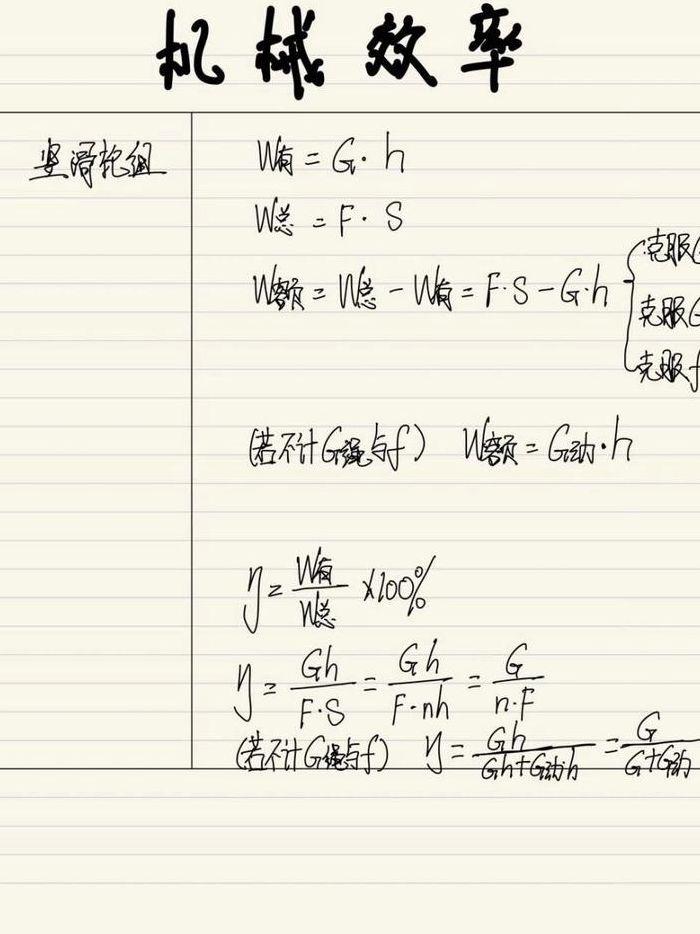 机械效率
竖滑轮组
W有 = G · h
W总 = F · S
W额 = W总 - W有 = F·S - G·h
克服G
克服G
克服f
(若不计G绳与f) W额 = G动·h
η = W有/W总 ×100%
η = Gh/F·S = Gh/F·nh = G/n·F
(若不计G绳与f) η = Gh/Gh+G动h = G/G+G动